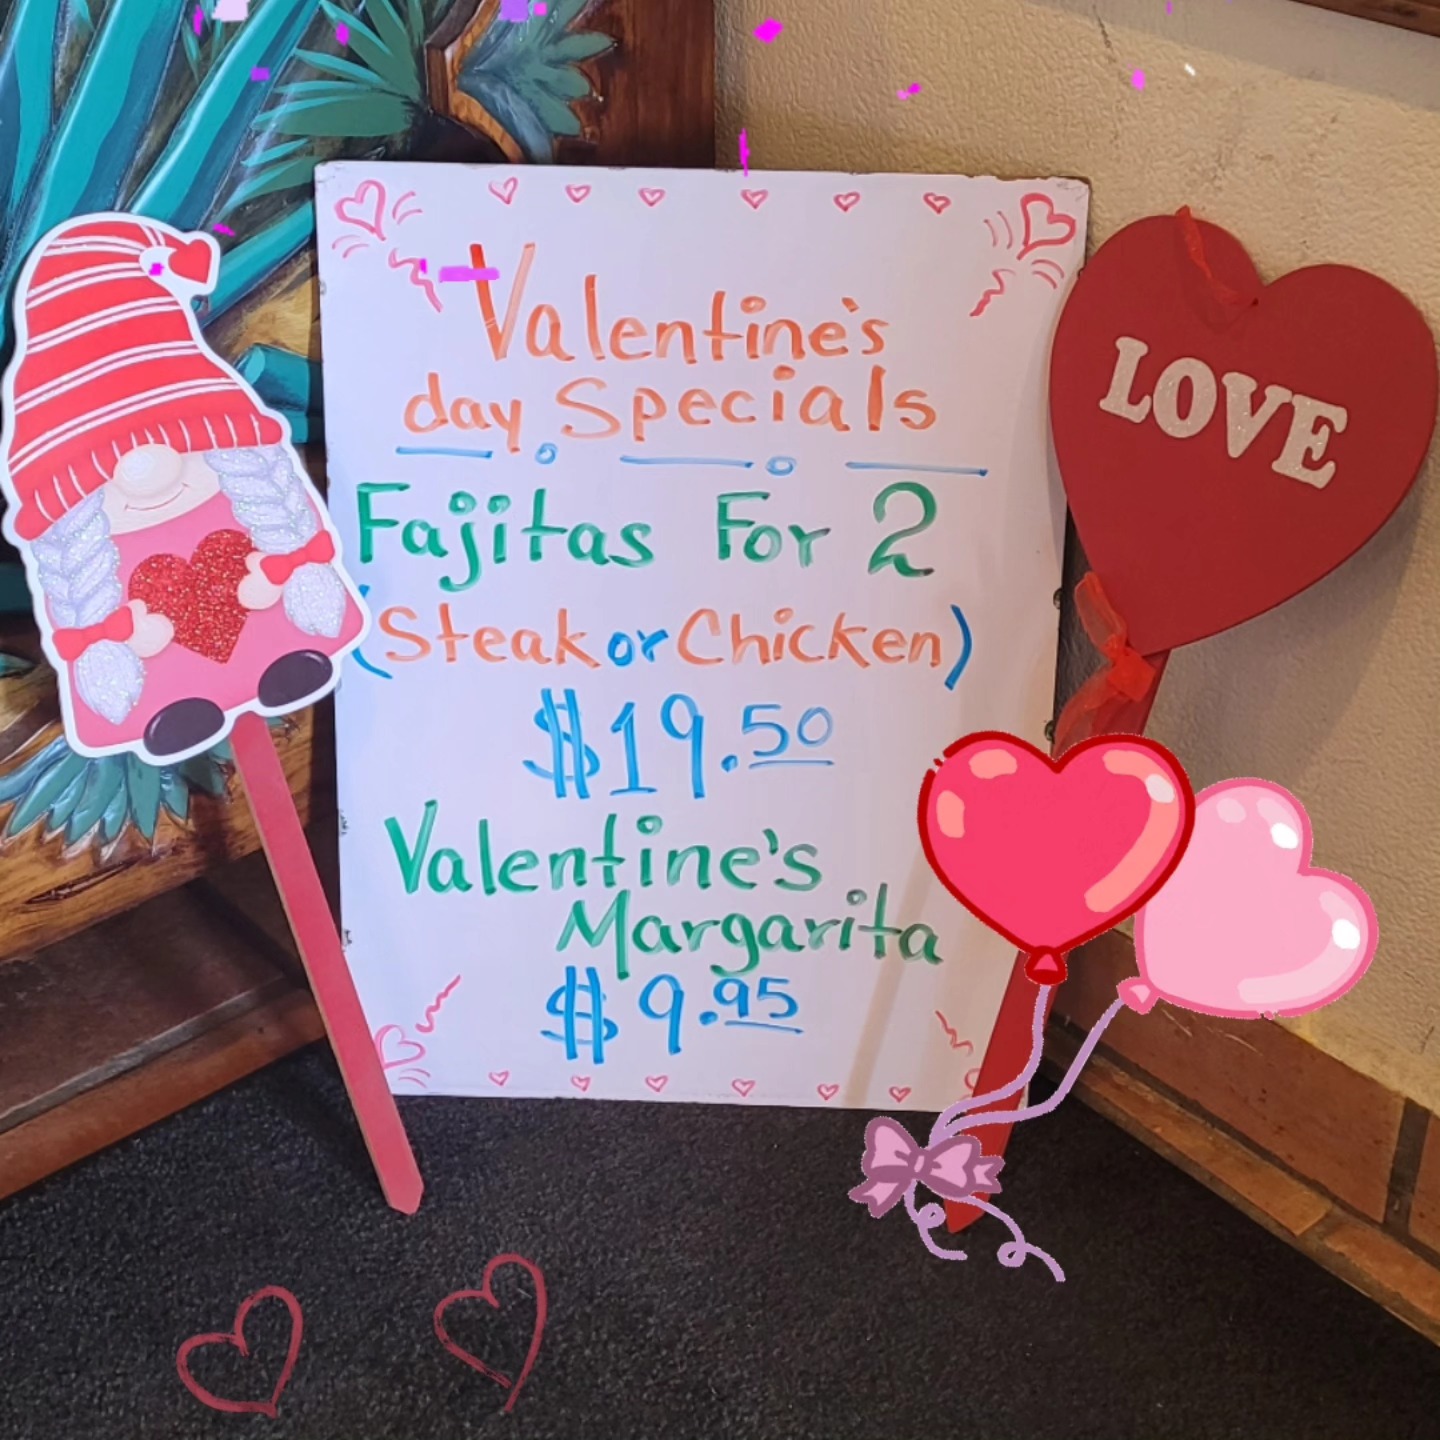 Valentine's
day Specials
Fajitas For 2
(Steak or Chicken)
$19.50
Valentine's
Margarita
$9.95
LOVE